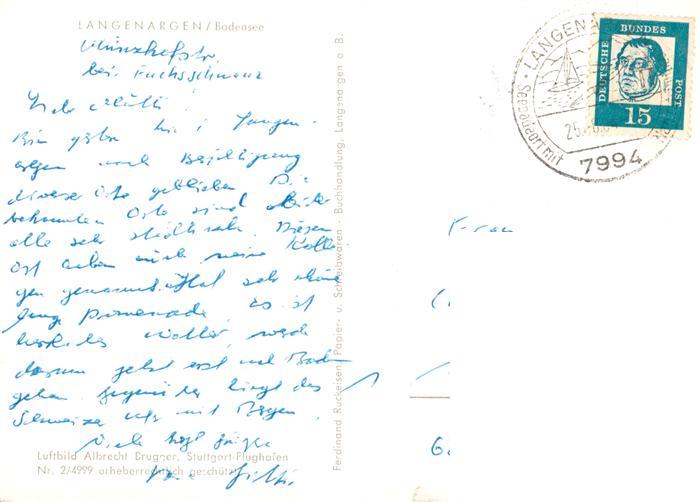 LANGENARGEN/Bodensee
Münzhofstr.
bei Fuchsschwanz
Liebe Mutti!
Bin gestern hier i. Langen-
argen nach Besichtigung
diverse Orte geblieben. Die
bekannten Orte sind leider
alle sehr städtisch. Diesen
Ort haben mir meine Kolle-
gen genannt. Hat sehr schöne
lange Promenade, es ist
herrliches Wetter, werde
darum jetzt erst mal Baden
gehen. Gegenüber liegt das
Schweizer Ufer mit Bergen.
Viele herzl. Grüße
Luftbild Albrecht Brugger, Stuttgart-Flughafen
Nr. 2/4999 urheberrechtlich geschützt
Ferdinand Ruckeisen, Papier- u. Schreibwaren - Buchhandlung, Langenargen a. B.
LANGENA
25.
7994
DEUTSCHE BUNDES POST
15
Frau